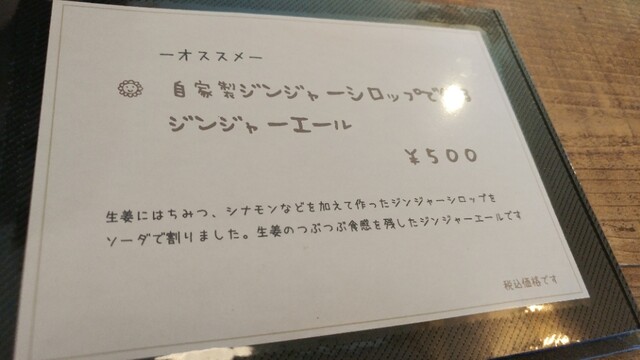 ーオススメー
自家製ジンジャーシロップで
ジンジャーエール
¥500
生姜にはちみつ、シナモンなどを加えて作ったジンジャーシロップを
ソーダで割りました。生姜のつぶつぶ食感を残したジンジャーエールです
税込価格です